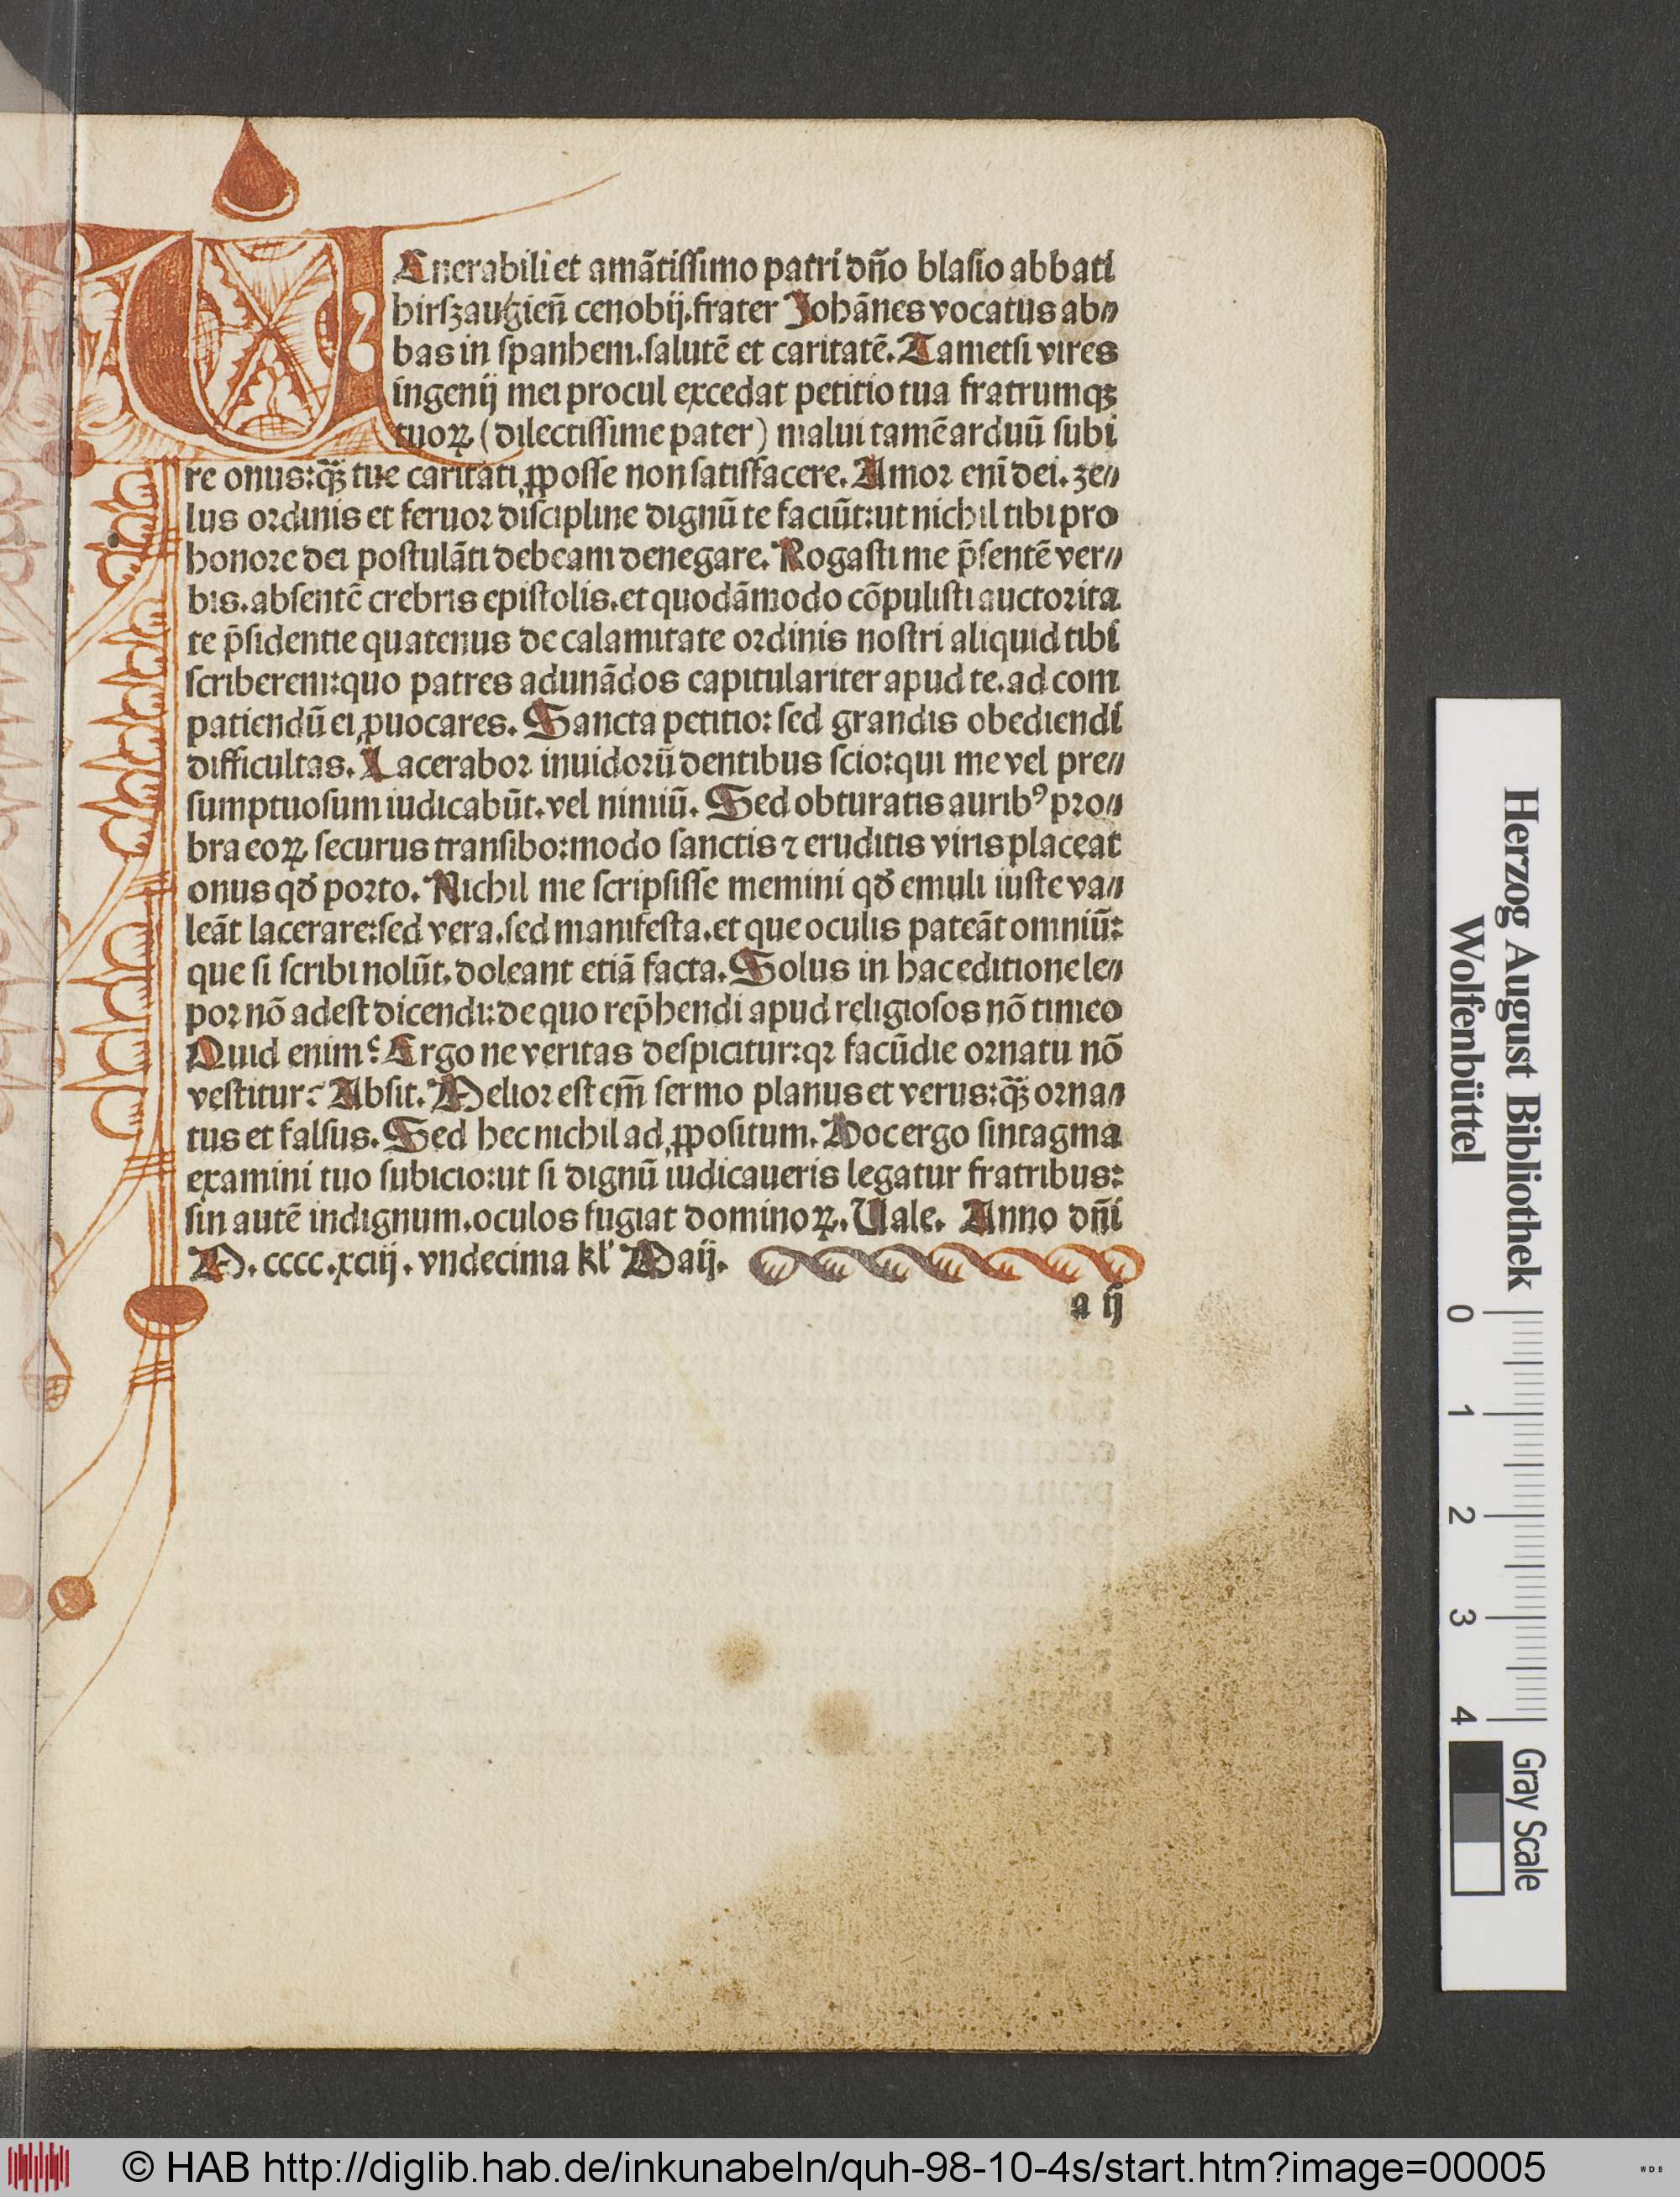 VEnerabili et amãtiſſimo patri dño blaſio abbati
hirſzaugieñ cenobij.frater Johãnes vocatus ab⸗
bas in ſpanhem.ſalutẽ et caritatẽ. Tametſi vires
ingenij mei procul excedat petitio tua fratrumqꝫ
tuoꝝ (dilectiſſime pater) malui tamẽ arduũ ſubi
re onus:q̃ꝫ tue caritati ꝓpoſſe non ſatiſfacere. Amor enĩ dei. ze⸗
lus ordinis et feruor diſcipline dignũ te faciũt:ut nichil tibi pro
honore dei poſtulãti debeam denegare. Rogaſti me p̃ſentẽ ver⸗
bis.abſentẽ crebris epiſtolis.et quodãmodo cõpuliſti auctorita
te p̃ſidentie quatenus de calamitate ordinis noſtri aliquid tibi
ſcriberem:quo patres adunãdos capitulariter apud te.ad com
patiendũ ei ꝓuocares. Sancta petitio: ſed grandis obediendi
difficultas. Lacerabor inuidorũ dentibus ſcio:qui me vel pre⸗
ſumptuoſum iudicabũt.vel nimiũ. Sed obturatis auribꝰ pro⸗
bra eoꝝ ſecurus tranſibo:modo ſanctis ⁊ eruditis viris placeat
onus qď porto. Nichil me ſcripſiſſe memini qď emuli iuſte va⸗
leãt lacerare:ſed vera.ſed manifeſta.et que oculis pateãt omniũ:
que ſi ſcribi nolũt.doleant etiã facta. Solus in hac editione le⸗
por nõ adeſt dicendi:de quo rep̃hendi apud religioſos nõ timeo
Quid enim? Ergo ne veritas deſpicitur:qꝛ facũdie ornatu nõ
veſtitur? Abſit. Melior eſt em̃ ſermo planus et verus:q̃ꝫ orna⸗
tus et falſus. Sed hec nichil ad ꝓpoſitum. Hoc ergo ſintagma
examini tuo ſubicio:ut ſi dignũ iudicaueris legatur fratribus:
ſin autẽ indignum.oculos fugiat dominoꝝ. Uale. Anno dñi
M. cccc.xciij . vndecima kl' Maij.
a ij
Herzog August Bibliothek
Wolfenbüttel
0 1 2 3 4
Gray Scale
© HAB http://diglib.hab.de/inkunabeln/quh-98-10-4s/start.htm?image=00005
WDB